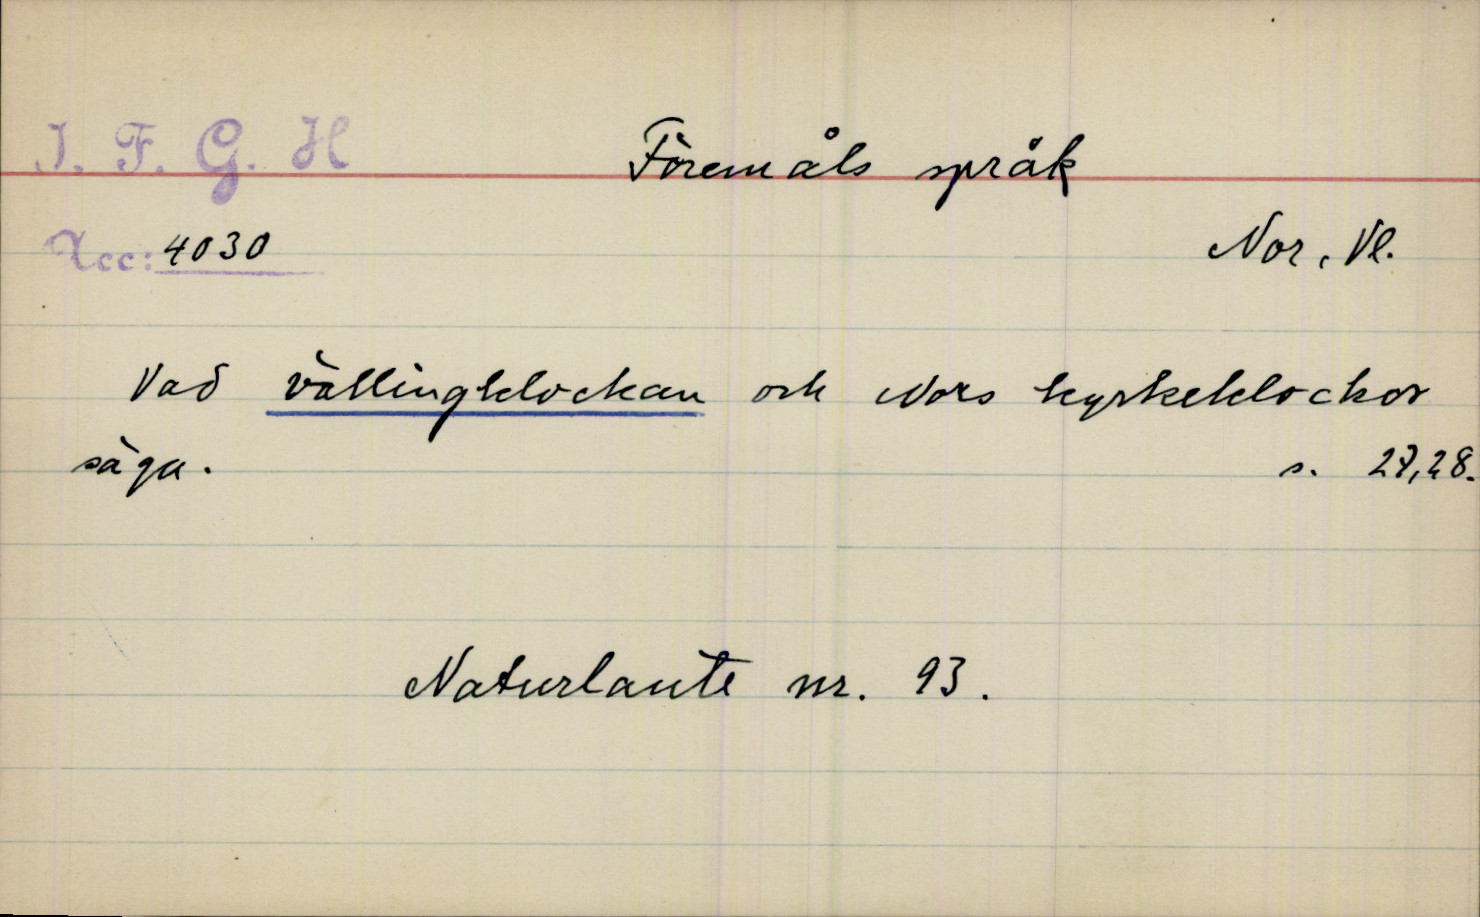 I. F. G. H
Föremåls språk
Acc: 4030
Nor, Vl.
Vad vällingklockan och Nors kyrkeklockor
säga. s. 27,28.
Naturlaute nr. 93.